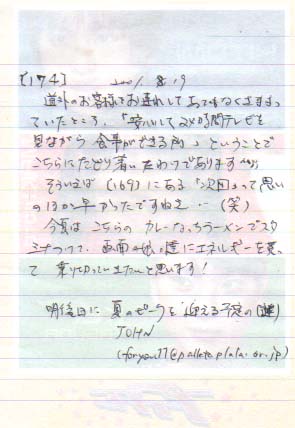 [174] 2001. 8. 19
道外のお客様をお連れして あてもなくさまよっ
ていたところ、「安心して24時間テレビを
見ながら 食事ができる所」ということで
こちらにたどり着いたわけであります
そういえば (169)にある「次回」って思い
のほか早かったですねえ… (笑)
今夏は こちらの カレーなっちラーメンでスタ
ミナつけて、 画面の 達にエネルギーを貰っ
て 乗り切っていきたいと思います!
明後日に 夏のピークを 迎える予定の
JOHN
(foryou77@pallete.plala.or.jp)